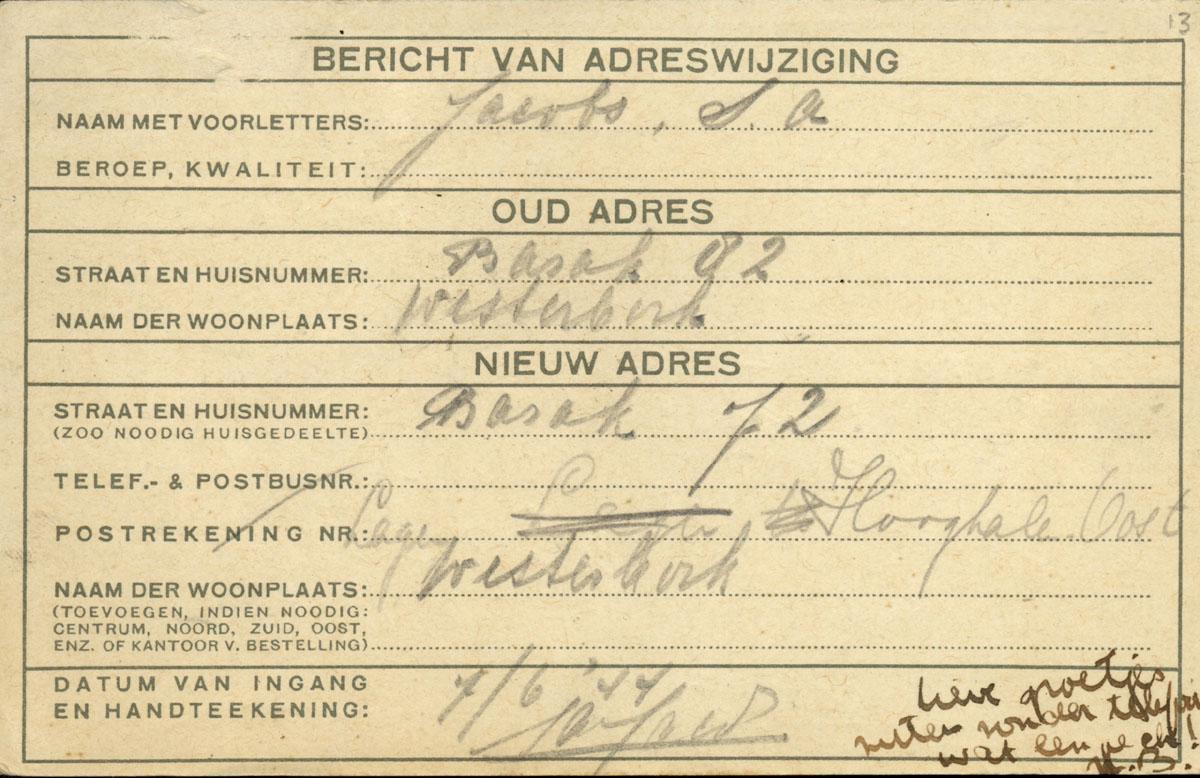 13
BERICHT VAN ADRESWIJZIGING
NAAM MET VOORLETTERS: Jacobs, S. A
BEROEP, KWALITEIT:
OUD ADRES
STRAAT EN HUISNUMMER: Barak 82
NAAM DER WOONPLAATS: Westerbork
NIEUW ADRES
STRAAT EN HUISNUMMER: Barak 72
(ZOO NOODIG HUISGEDEELTE)
TELEF.- & POSTBUSNR.:
POSTREKENING NR.: Lager Hooghalen Oost
NAAM DER WOONPLAATS: Westerbork
(TOEVOEGEN, INDIEN NOODIG:
CENTRUM, NOORD, ZUID, OOST,
ENZ. OF KANTOOR V. BESTELLING)
DATUM VAN INGANG
EN HANDTEEKENING: 7/6 '44
lieve groetjes
zonder
wat een pech!